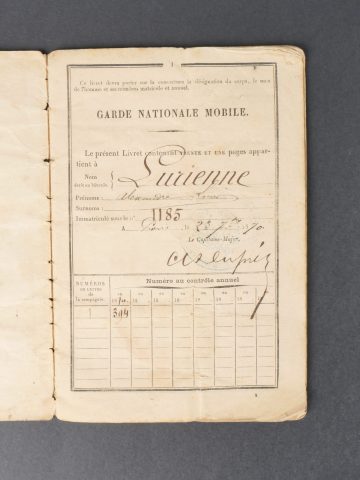 1
Ce livret devra porter sur la couverture la désignation du corps, le nom
de l'homme et ses numéros matricule et annuel.
GARDE NATIONALE MOBILE.
Le présent Livret contenant TRENTE ET UNE pages appar-
tient à
Nom
écrit en bâtarde.
Lurienne
Prénoms
Alexandre
Surnoms
Immatriculé sous le n° 1185
A le 22 1870
Le Capitaine-Major,
NUMÉROS
de la compagnie.
Numéro au contrôle annuel
en en en en en en en en
1870 18 18 18 18 18 18 18
1 399